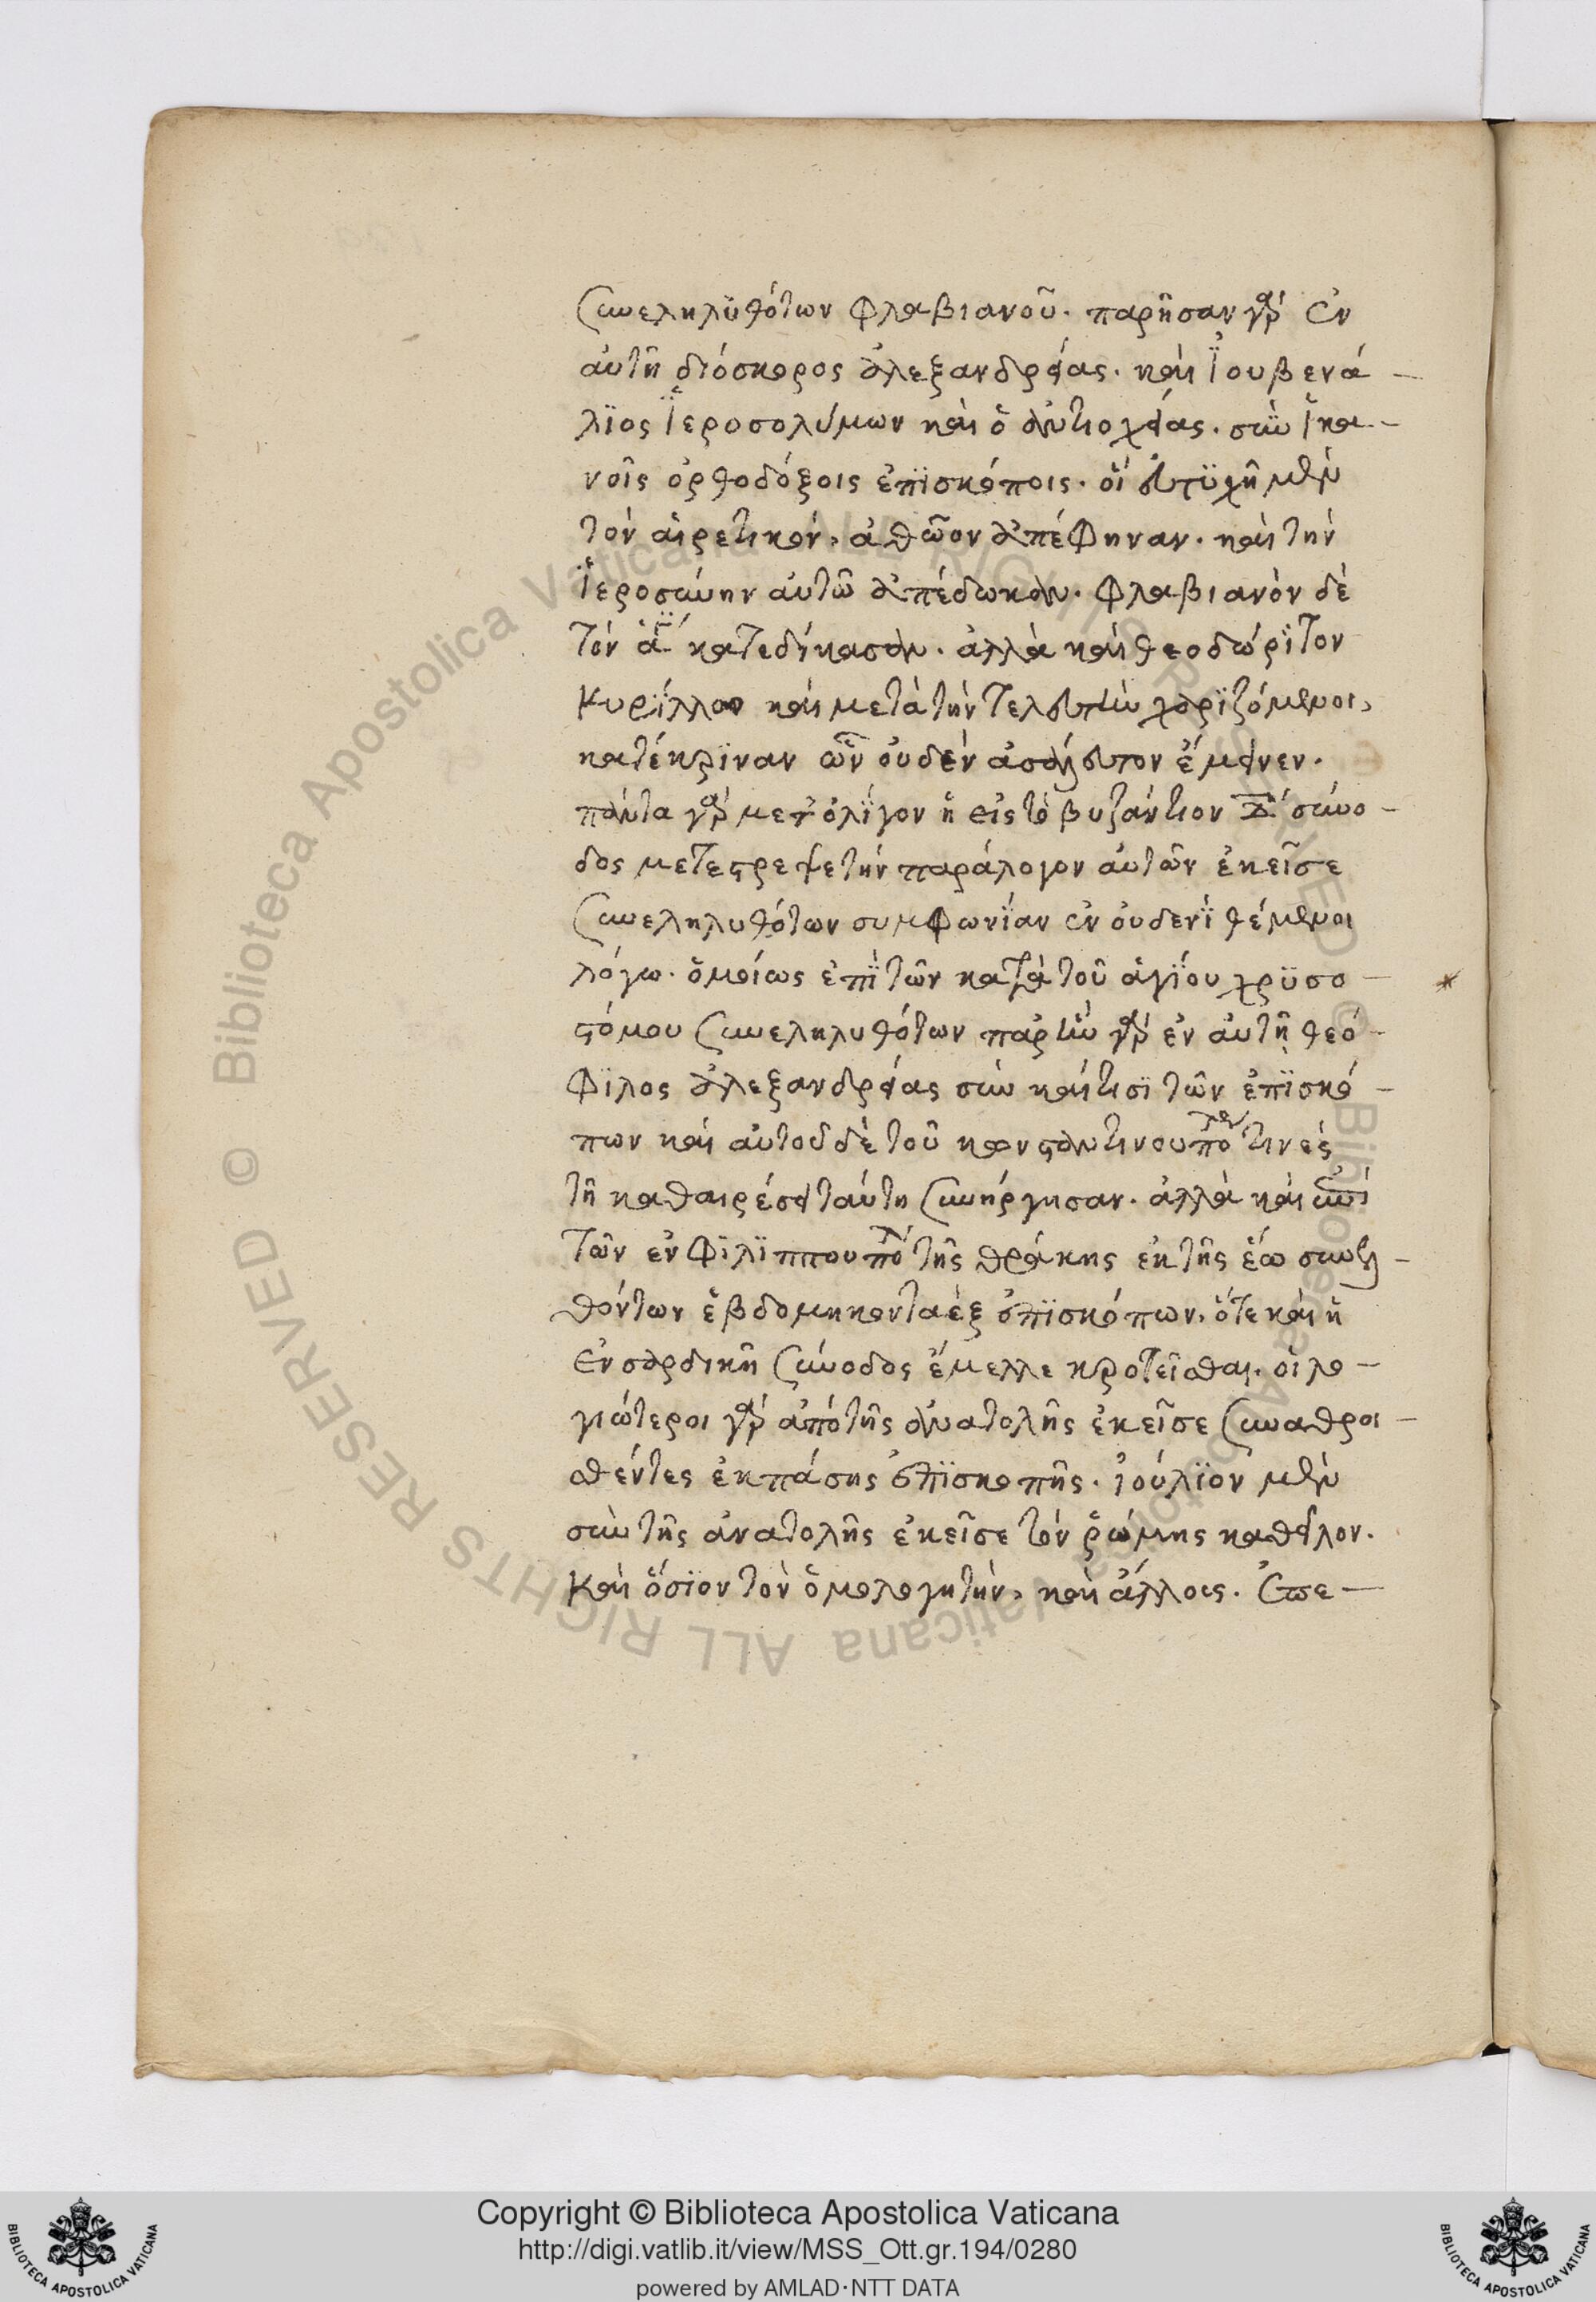 συνεληλϋθότων φλαβιανοῦ. παρῆσαν γὰρ ἐν
αὐτῆ διόσκορος ἀλεξανδρείας. καὶ ἰουβενά-
λϊος ἱεροσολύμων καὶ ὁ ἀντιοχείας. σὺν ἱκα-
νοῖς ὀρθοδόξοις ἐπϊσκόποις. οἳ εὐτϋχῆ μὲν
τὸν αἱρετικὸν, ἀθῶον ἀπέφηναν. καὶ τὴν
ἱεροσύνην αὐτῶ ἀπέδωκαν. φλαβιανὸν δὲ
τὸν ἅ κατεδίκασαν. ἀλλὰ καὶ θεοδώρϊτον
κυρϊλλον καὶ μετὰ τὴν τελευτὴν χαρϊζόμενοι,
κατέκρϊναν ὧν οὐδὲν ἀσάλευτον ἔμεινεν.
πάντα γὰρ μετ' ὀλϊγον ἡ εἰς τὸ βυζάντιον δ΄ σύνο-
δος μετεστρεψε τὴν παράλογον αὐτῶν ἐκεῖσε
συνεληλυθότων συμφωνΐαν ἐν οὐδενΐ θέμενοι
λόγω. ὁμοίως ἐπΐ τῶν κατὰ τοῦ ἁγΐου χρϋσο-
στόμου συνεληλυθότων παρῆν γὰρ ἐν αὐτῆ θεό-
φϊλος ἀλεξανδρείας σὺν καί τισϊ τῶν ἐπϊσκό-
πων καὶ αὐτοῦ δὲ τοῦ κονσταντινουπο τινές
τῆ καθαιρέσει ταύτη συνήργησαν. ἀλλὰ καὶ ἐπί
τῶν ἐν φϊλϊππουπό τῆς θράκης ἐκ τῆς ἕω συνελ-
θόντων ἑβδομηκονταὲξ ἐπϊσκόπων, ὅτε καὶ ἡ
ἐν σαρδικῆ σύνοδος ἔμελλε κροτεῖσθαι. οἱ λο-
γιώτεροι γὰρ ἀπὸ τῆς ἀνατολῆς ἐκεῖσε συναθροι-
σθέντες ἐκ πάσης ἐπϊσκοπῆς. ἰούλϊον μὲν
σὺν τῆς ἀνατολῆς ἐκεῖσε τὸν ῥώμης καθεῖλον.
καὶ ὅσϊον τὸν ὁμολογητὴν, καὶ ἄλλοις. Ὥσπε-
Copyright © Biblioteca Apostolica Vaticana
http://digi.vatlib.it/view/MSS_Ott.gr.194/0280
powered by AMLAD·NTT DATA
BIBLIOTECA APOSTOLICA VATICANA
BIBLIOTECA APOSTOLICA VATICANA